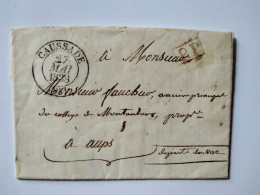 CAUSSADE
27
MAI
à Monsieur
Monsieur faucheur, ancien principal
du collège de Montauban, propre.
à aups
Departt du Var